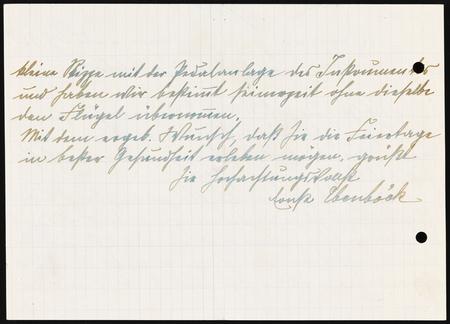 kleine Skizze mit der Pedalanlage des Instrumentes
und haben wir bestimmt seinerzeit ohne dieselbe
den Flügel übernommen.
Mit dem ergeb. Wunsch, daß Sie die Feiertage
in bester Gesundheit erleben mögen, grüßt
Sie hochachtungsvollst
Ebenböck